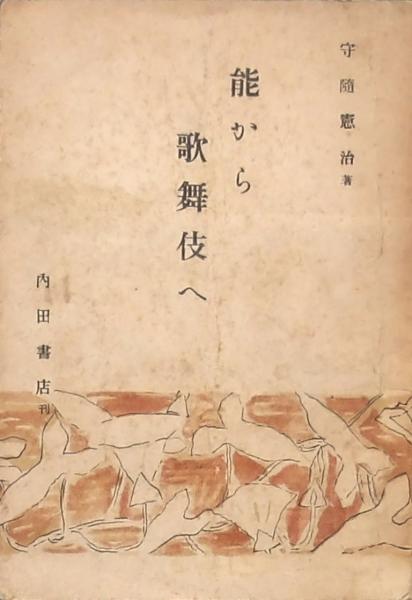 守隨憲治著
能から
歌舞伎へ
內田書店刊